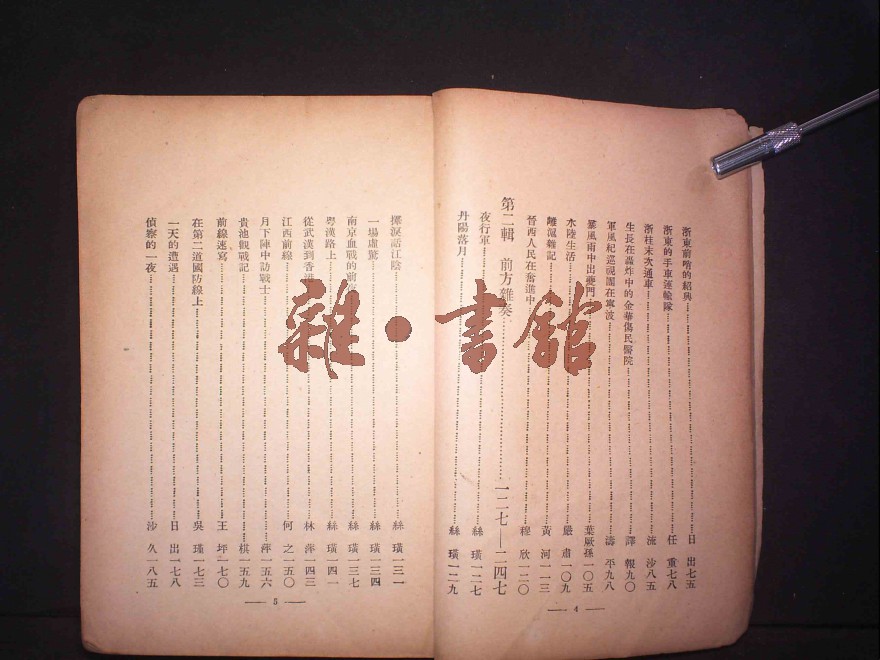 浙東前哨的紹興……日 出 七五
浙東的手車運輸隊……任 重 七八
浙桂末次通車……流 沙 八五
生長在轟炸中的金華傷民醫院……譯 報 九〇
軍風紀巡視團在寧波……濤 平 九八
暴風雨中出夔門……葉厥孫 一〇五
水陸生活……嚴 肅 一〇九
雜記……黃 河 一一三
晉西人民在奮進中……程 欣 一二〇
第二輯 前方雜奏……一二七—二四七
夜行軍……絲 璜 一二七
丹陽落月……絲 璜 一二九
— 4 —
揮淚話江陰……絲 璜 一三一
一場虛驚……絲 璜 一三四
南京血戰的前……絲 璜 一三七
粵漢路上……絲 璜 一四一
從武漢到香港……林 萍 一四三
江西前線……何 之 一五〇
月下陣中訪戰士……萍 一五六
貴池觀戰記……棋 一五九
前線速寫……王 坪 一七〇
在第二道國防線上……吳 瑾 一七三
一天的遭遇……日 出 一七八
偵察的一夜……沙 久 一八五
— 5 —
雜·書館